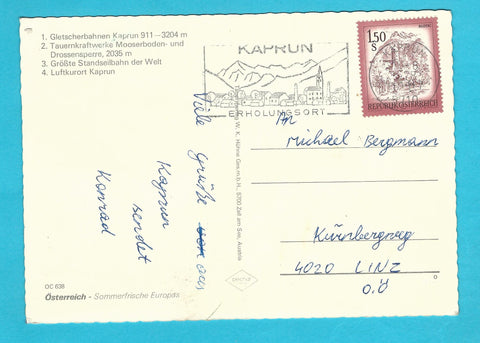 1. Gletscherbahnen Kaprun 911—3204 m
2. Tauernkraftwerke Mooserboden- und
Drossensperre, 2035 m
3. Größte Standseilbahn der Welt
4. Luftkurort Kaprun
KAPRUN
ERHOLUNGSORT
1.50
S
REPUBLIK ÖSTERREICH
Viele Grüße aus
Kaprun
sendet
Konrad
An
Michael Bergmann
Kürnbergweg
4020 LINZ
O.Ö
W. K. Hübner Ges.m.b.H., 5700 Zell am See, Austria
OC 638
Österreich - Sommerfrische Europas